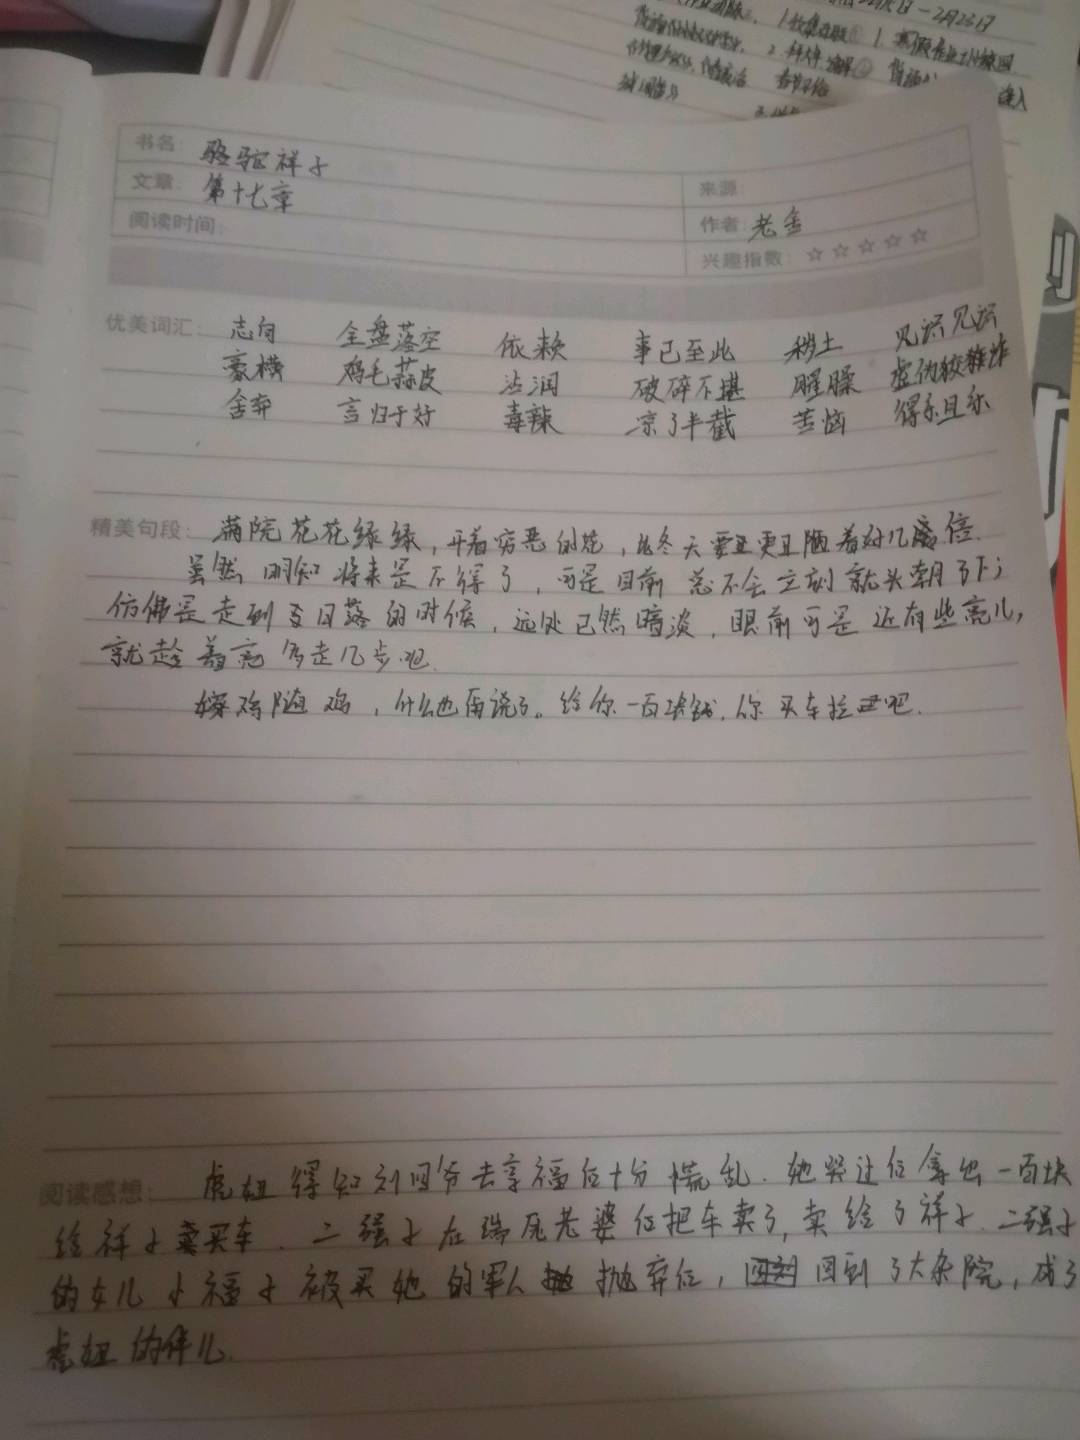 书名: 骆驼祥子
文章: 第十七章
来源:
阅读时间:
作者: 老舍
兴趣指数: ☆☆☆☆☆
优美词汇: 志向 全盘落空 依赖 事已至此 秽土 见识见识
豪横 鸡毛蒜皮 沾润 破碎不堪 腥臊 虚伪狡诈
舍弃 言归于好 毒辣 凉了半截 苦恼 得乐且乐
精美句段: 满院花花绿绿,开着穷恶的花,比冬天要更丑陋着好几倍.
虽然明知将来是不得了,可是目前总不会立刻就头朝了下;
仿佛是走到了日落的时候,远处已然暗淡,眼前可是还有些亮儿,
就趁着亮多走几步吧.
嫁鸡随鸡,什么也再说了。给你一百块钱,你买车拉吧.
阅读感想: 虎妞得知刘四爷去享福后十分慌乱.她哭过后拿出一百块
给祥子买车.二强子在踹死老婆后把车卖了,卖给了祥子.二强子
的女儿小福子被买她的军人抛弃后,回到了大杂院,成了
虎妞的伴儿.